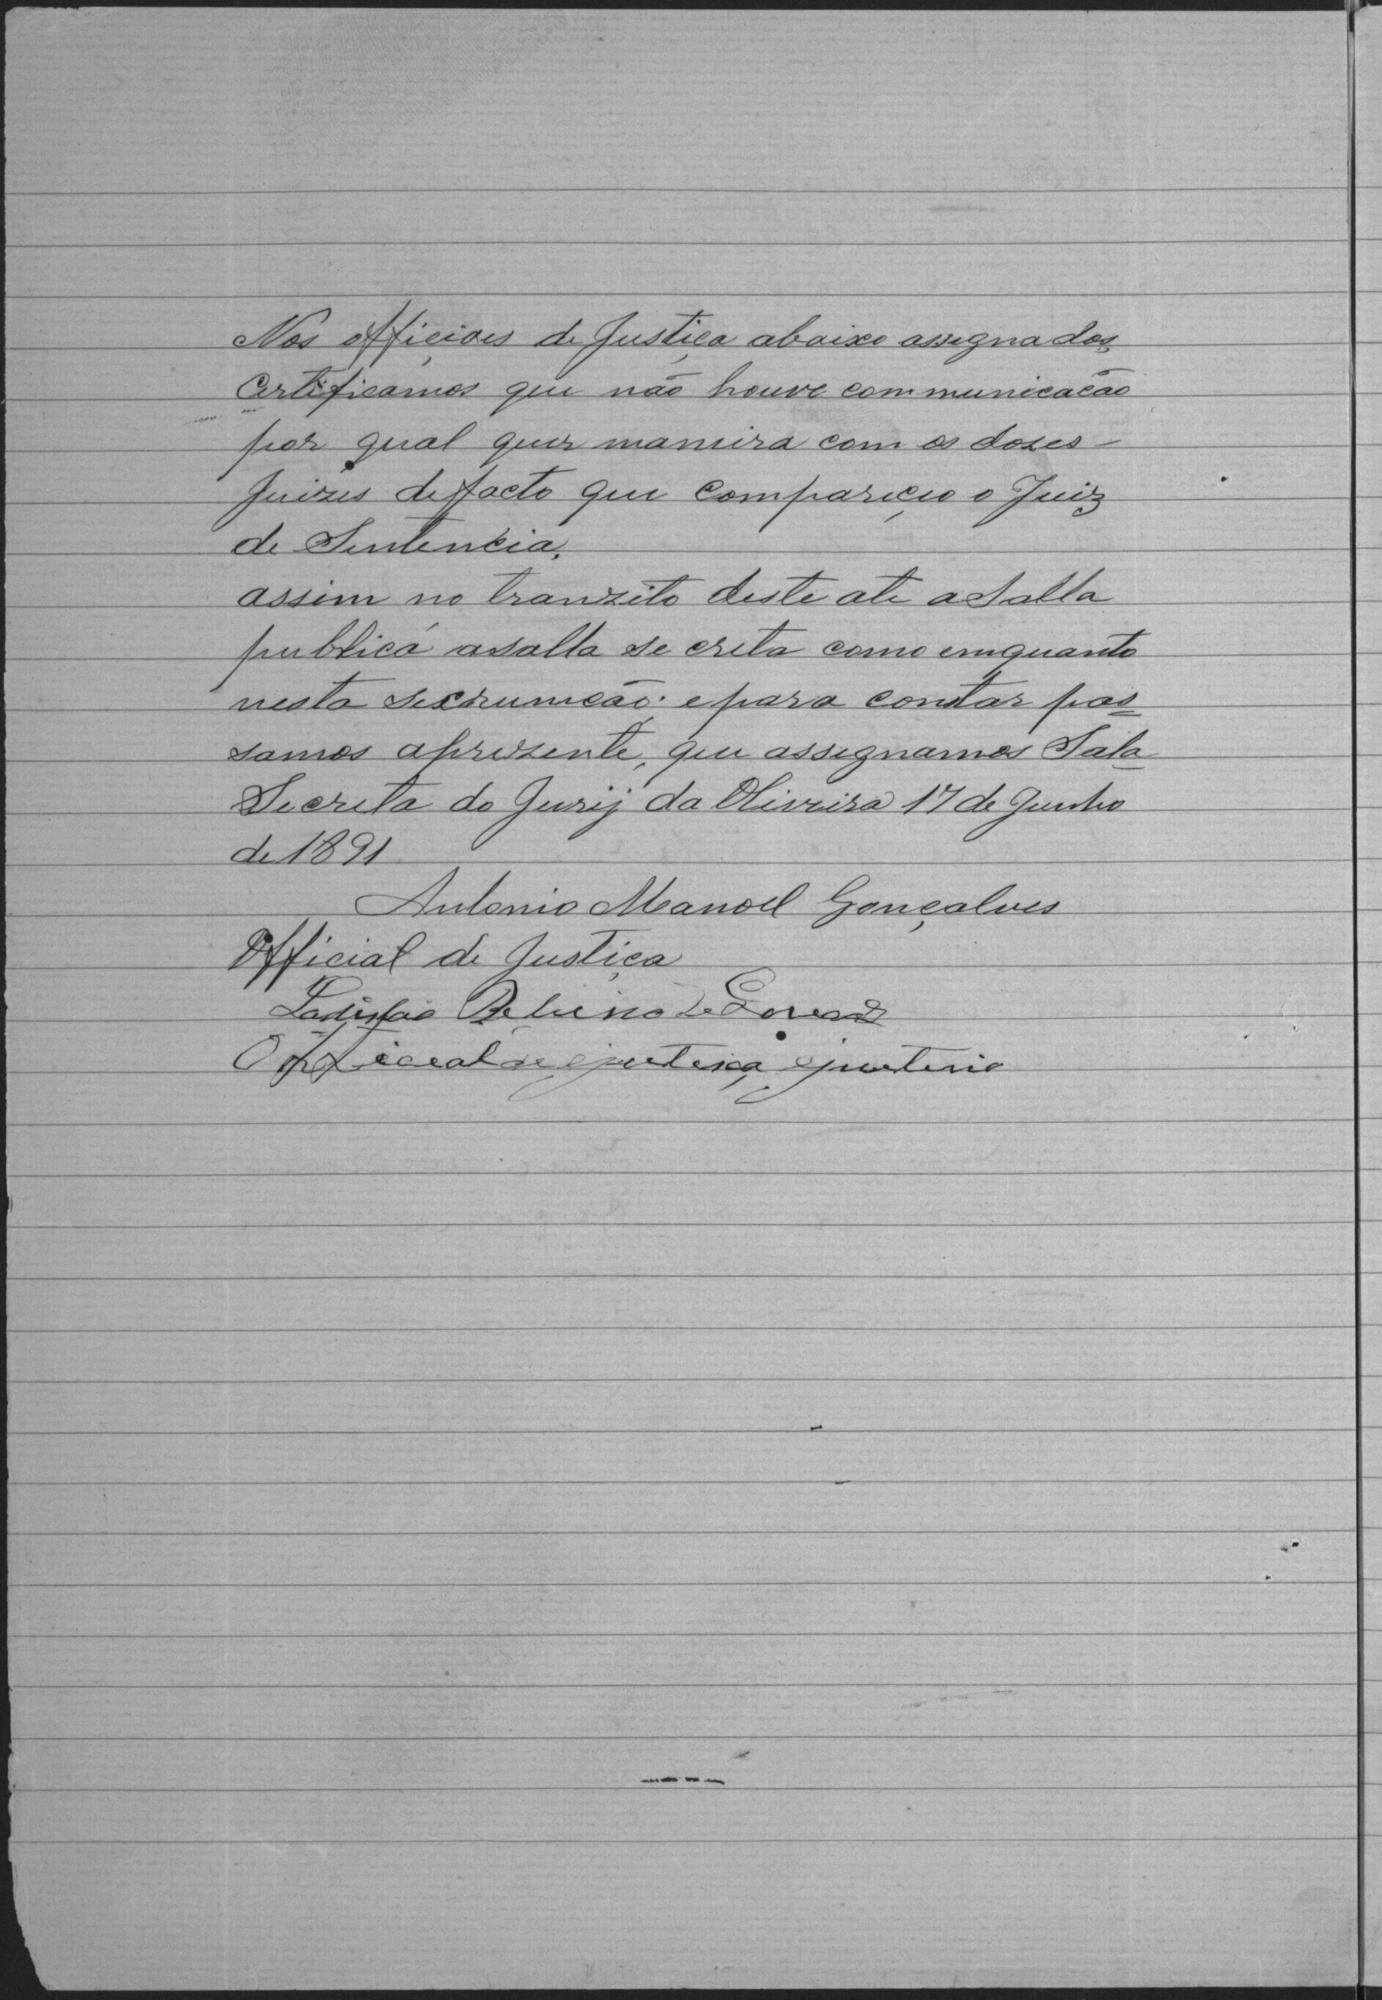 Nos officiaes de Justiça abaixo assignados
Certificamos que não houve communicacão
por qual quer maneira com os dozes
Juizes de facto que compareceo o Juiz
de Sentencia,
assim no tranzito deste ate a Salla
publica a salla se creta como emquanto
nesta e para constar pas=
samos a prezente, que assignamos Sala
Secreta do Jurij da Oliveira 17 de Junho
de 1891
Antonio Manoel Gonçalves
Official de Justiça
Ladislao de
Official de